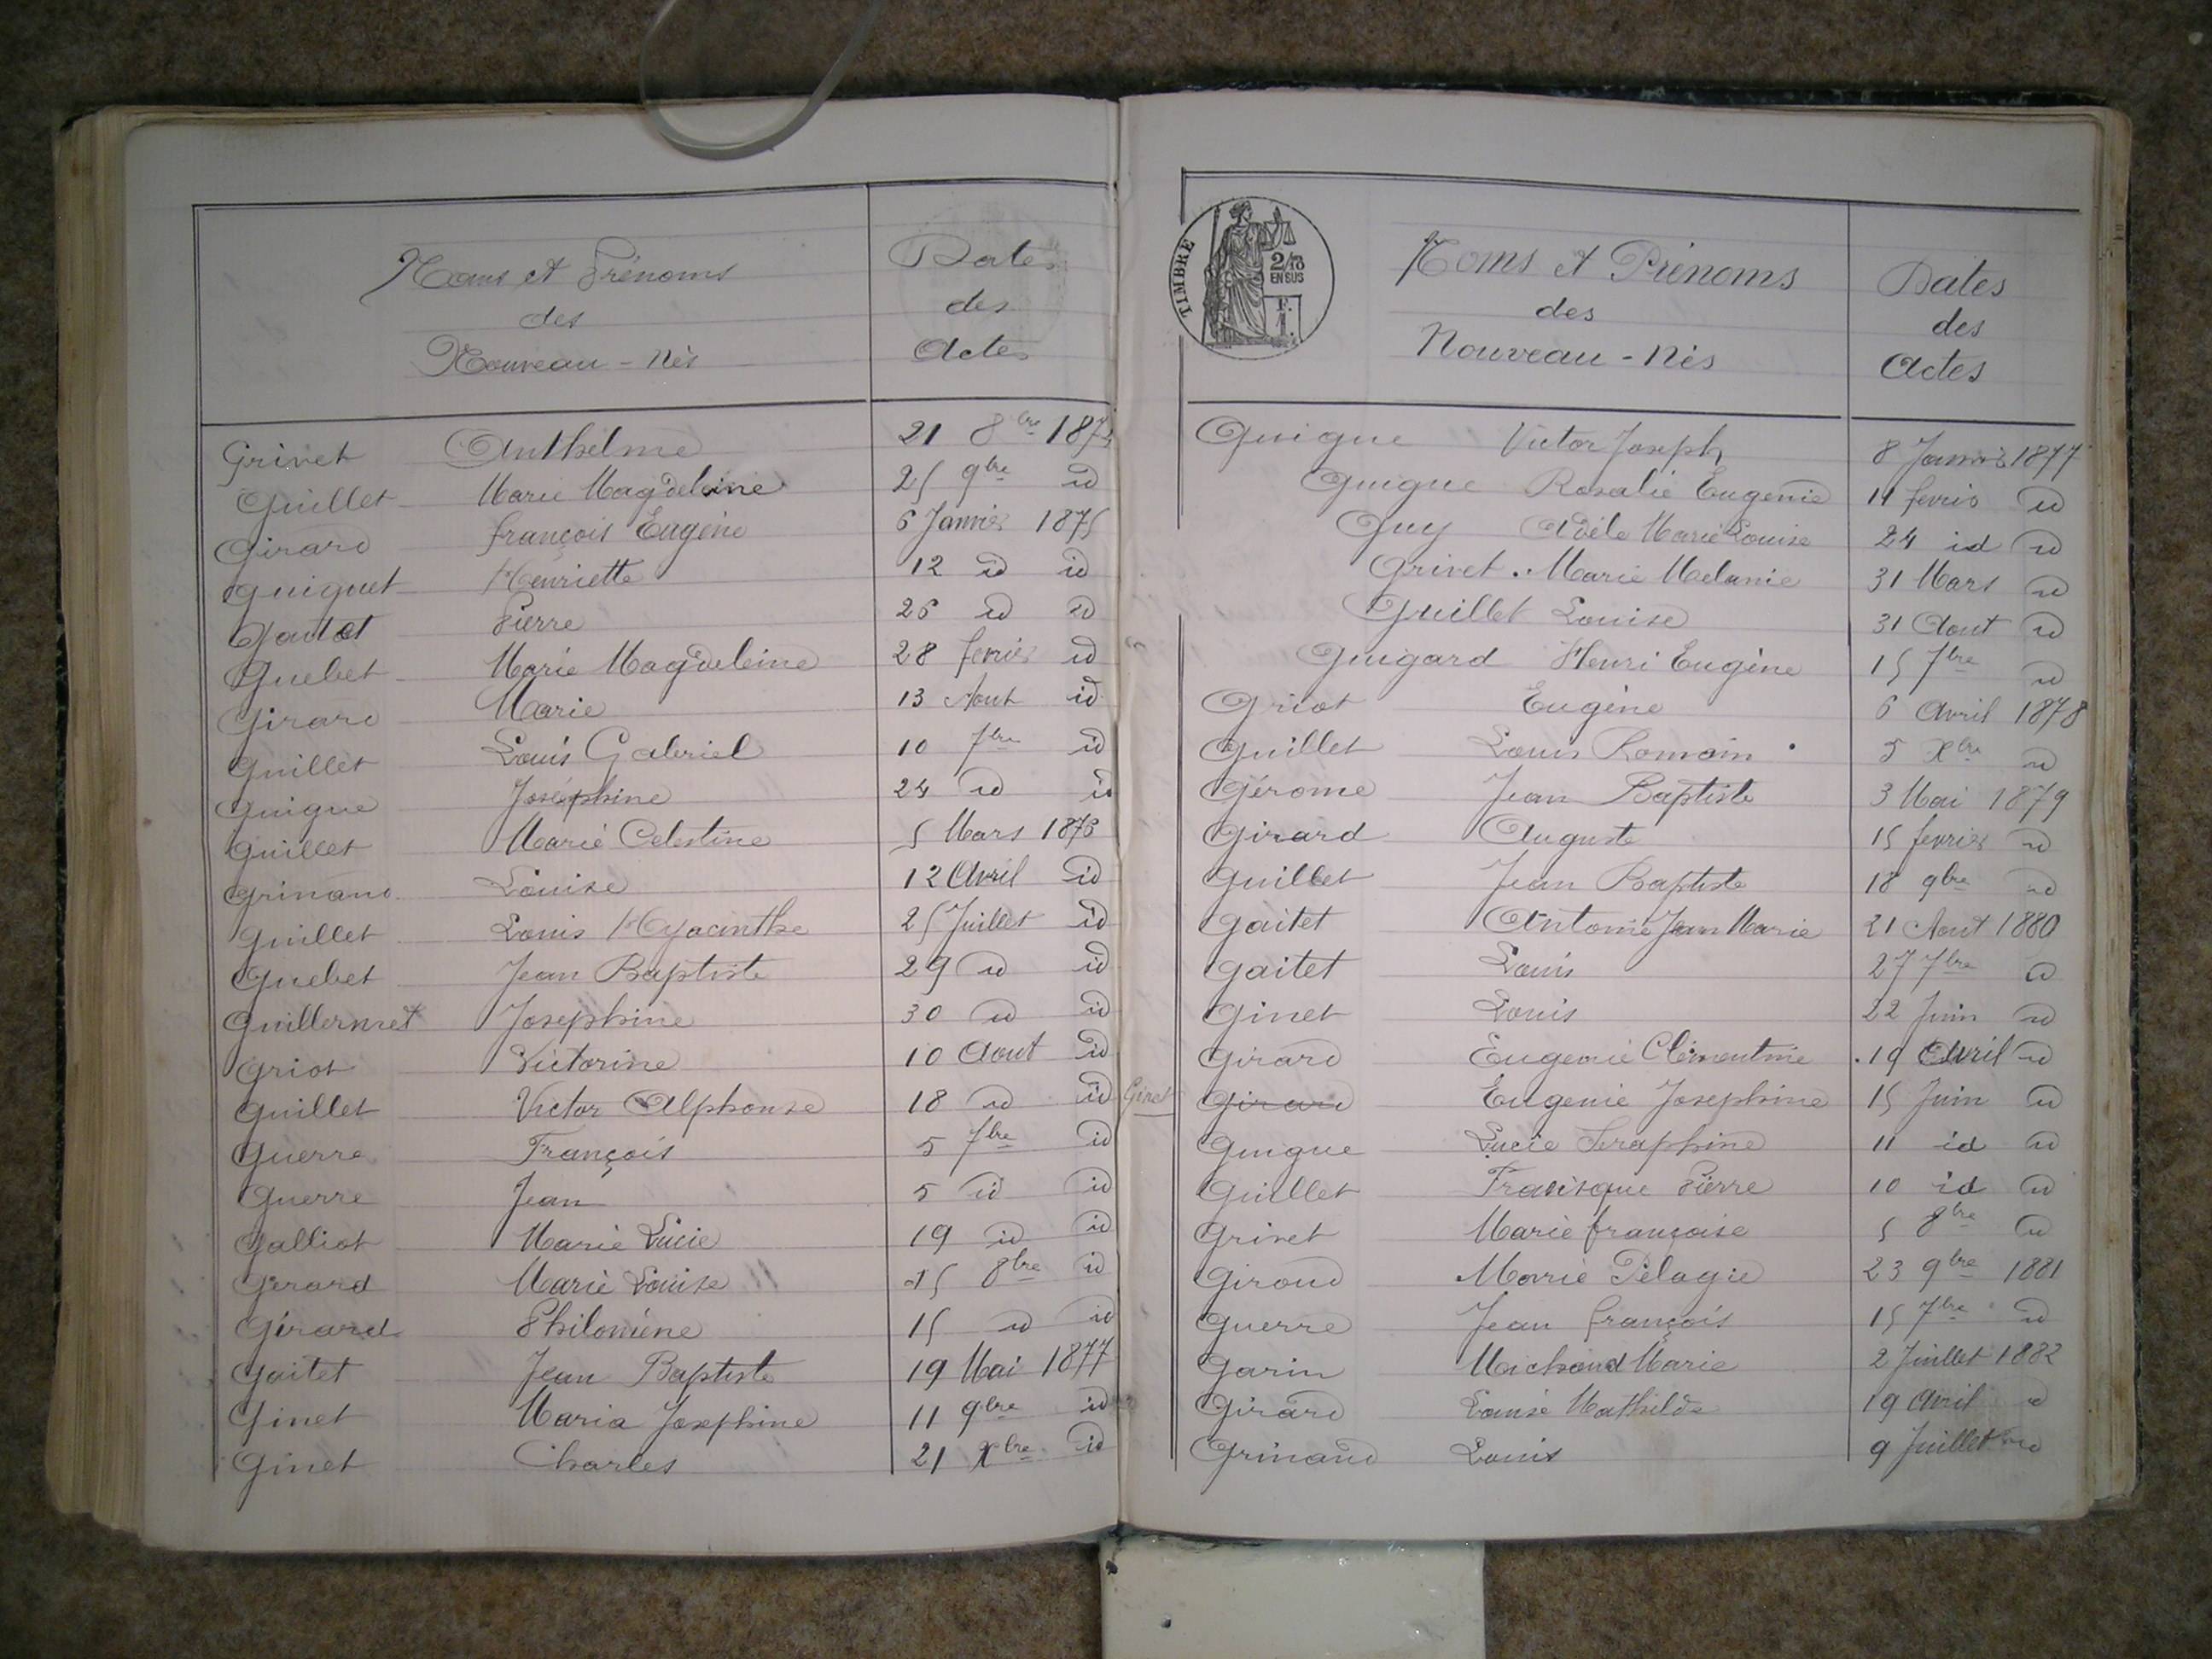 Noms et Prénoms
des
Nouveau-Nés
Dates
des
Actes
Grivet Anthelme 21 8bre
Guillet Marie Magdeleine 25 9bre id
Girard françois Eugène 6 Janvier 1875
Guiguet Henriette 12 id id
Pierre 26 id id
Guebet Marie Magdeleine 28 fevrier id
Girard Marie 13 Aout id
Guillet Louis Gabriel 10 7bre id
Guigue Joséphine 24 id id
Guillet Marie Celestine 5 Mars 1876
Grinand Louise 12 Avril id
Guillet Louis Hyacinthe 25 Juillet id
Guebet Jean Baptiste 29 id id
Guillermet Josephine 30 id id
Griot Victorine 10 Aout id
Guillet Victor Alphonse 18 id id
Guerre François 5 7bre id
Guerre Jean 5 id id
Galliot Marie Lucie 19 id id
Gerard Marie Louise 15 8bre id
Gérard Philomène 15 id id
Gaitet Jean Baptiste 19 Mai 1877
Ginet Maria Josephine 11 9bre id
Ginet Charles 21 Xbre id
TIMBRE
2/10
EN SUS
Noms et Prénoms
des
Nouveau-Nés
Dates
des
Actes
Guigue Victor Joseph 8 Janvier 1877
Guigue Rosalie Eugenie 14 fevrier id
Guy Adèle Marie Louise 24 id id
Grivet Marie Melanie 31 Mars id
Guillet Louise 31 Aout id
Guigard Henri Eugène 15 7bre id
Griot Eugène 6 Avril 1878
Guillet Louis Romain 5 Xbre id
Gérome Jean Baptiste 3 Mai 1879
Girard Auguste 15 fevrier id
Guillet Jean Baptiste 18 9bre id
Gaitet Antoine Jean Marie 21 Aout 1880
Gaitet Louis 27 7bre id
Ginet Louis 22 Juin id
Girard Eugenie Clémentine 19 Avril id
Ginet Girard Eugenie Josephine 15 Juin id
Guigue Lucie Seraphine 11 id id
Guillet Francisque Pierre 10 id id
Grivet Marie françoise 5 8bre id
Giroud Marie Pélagie 23 9bre 1881
Guerre Jean françois 15 7bre id
Garin Michaud Marie 2 Juillet 1882
Girard Louise Mathilde 19 Avril id
Grinand Louis 9 Juillet id